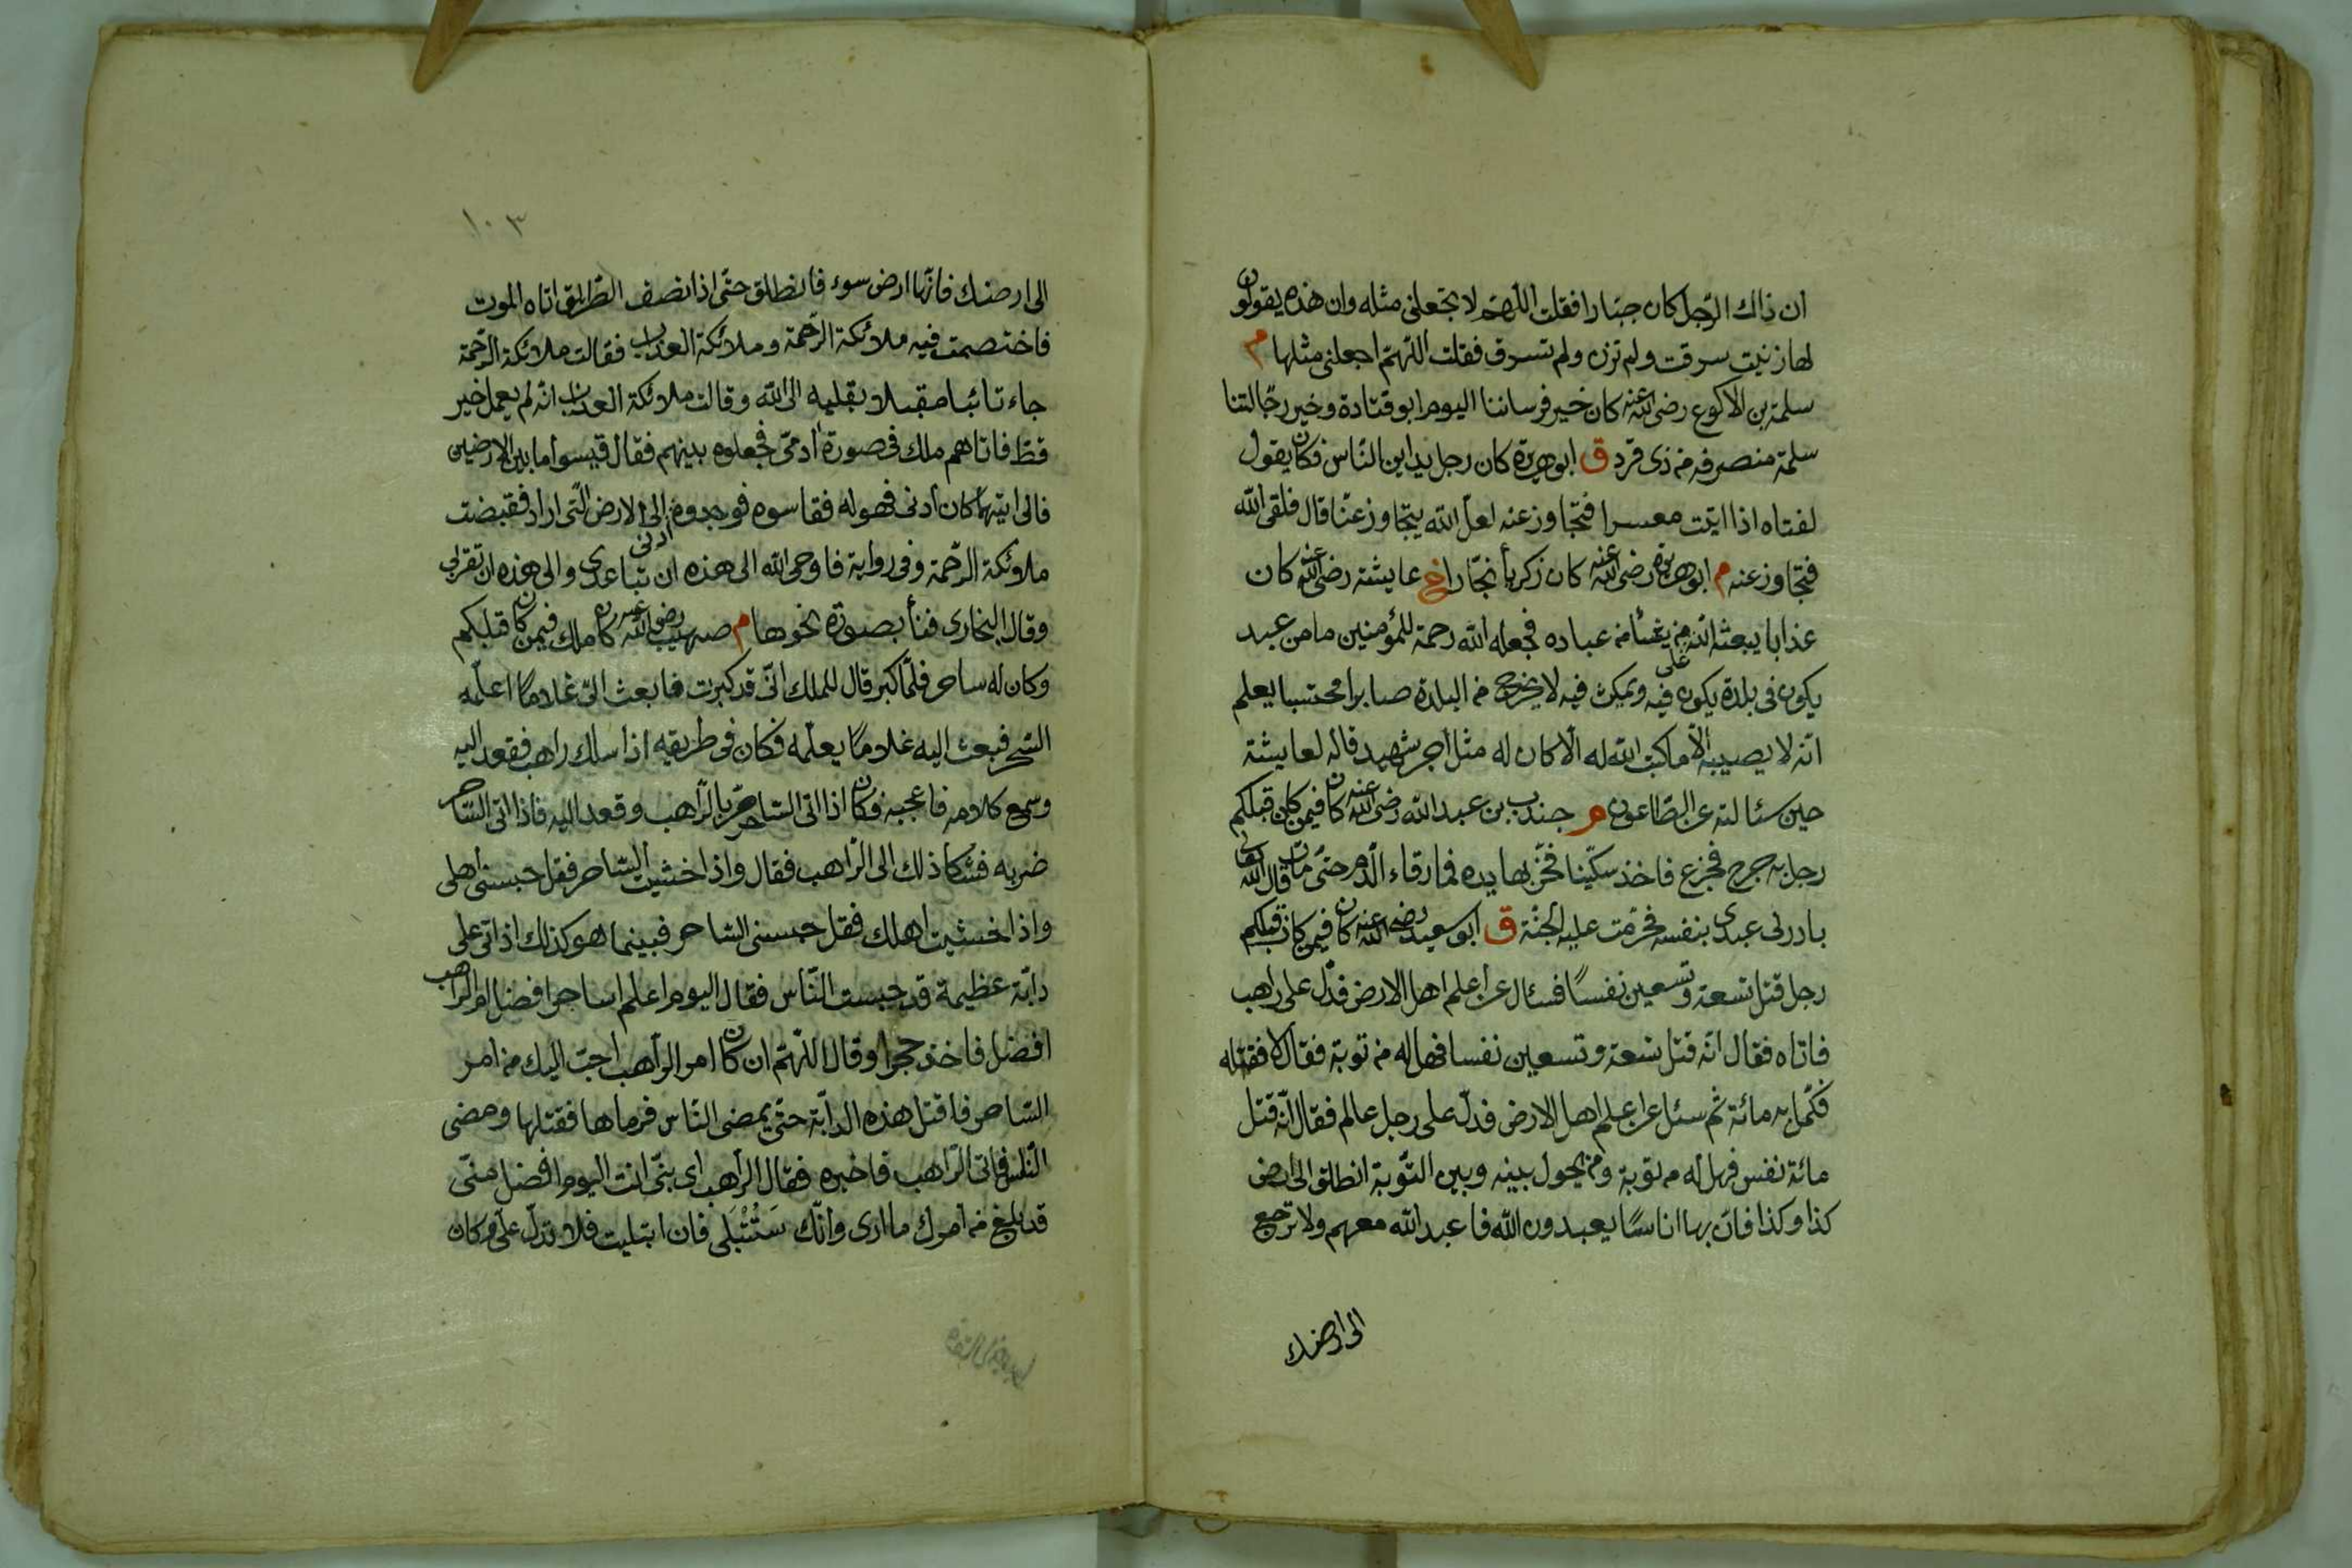 ان ذاك الرّجل كان جبّارا فقلت اللّهمّ لا تجعلنى مثله وان هذه يقولون
لها زنيت سرقت ولم تزن ولم تسرق فقلت اللّهمّ اجعلنى مثلها م
سلمة بن الاكوع رضى الله عنه كان خير فرساننا اليوم ابو قتادة وخير رجّالتنا
سلمة منصرفه من ذى قرد ق ابو هريرة كان رجل يداين النّاس فكان يقول
لفتاه اذا اتيت معسرا فتجاوز عنه لعلّ الله يتجاوز عنّا قال فلقى الله
فتجاوز عنه م ابو هريرة رضى الله عنه كان زكريّا نجّارا خ عايشة رضى الله عنه كان
عذابا يبعثه الله من يشأ من عباده فجعله الله رحمة للمؤمنين ما من عبد
يكون فى بلدة يكون فيه ويمكث فيه لا يخرج من البلدة صابرا محتسبا يعلم
انّه لا يصيبه الّا ما كتب الله له الّا كان له مثل اجر شهيد قاله لعايشة
حين سئالته عن الطّاعون م جندب بن عبد الله رضى الله عنه كان فيمن كان قبلكم
رجل به جرح فجزع فاخذ سكّينا فحزّ بها يده فما رقاء الدّم حتّى مات قال الله تعالى
بادرنى عبدى بنفسه فحرّمت عليه الجنّة ق ابو سعيد رضى الله عنه كان فيمن كان قبلكم
رجل قتل تسعة وتسعين نفسًا فسئال عن اعلم اهل الارض فدلّ على راهب
فاتاه فقال انّه قتل تسعة وتسعين نفسا فهل له من توبة فقال لا فقتله
فكمّل به مائة ثم سئل عن اعلم اهل الارض فدلّ على رجل عالم فقال انّه قتل
مائة نفس فهل له من توبة ومن يحول بينه وبين التّوبة انطلق الى ارض
كذا وكذا فانّ بها اناسًا يعبدون الله فاعبد الله معهم ولا ترجع
الى ارضك
١٠٣
الى ارضك فانّها ارض سوء فانطلق حتّى اذا نصف الطّريق اتاه الموت
فاختصمت فيه ملائكة الرّحمة وملائكة العذاب فقالت ملائكة الرّحمة
جاء تائبا مقبلا بقلبه الى الله وقالت ملائكة العذاب انّه لم يعمل خير
قطّ فاتاهم ملك فى صورة آدمىّ فجعلوه بينهم فقال قيسوا ما بين الارضين
فالى ايتهما كان أدنى فهو له فقاسوه فوجدوه أدنى الى الارض الّتى اراد فقبضت
ملائكة الرّحمة وفى رواية فاوحى الله الى هذه ان تباعدى والى هذه ان تقربى
وقال البخارى فنأ بصدره نحوها م صهيب رضى الله عنه كان ملك فيمن كان قبلكم
وكان له ساحر فلمّا كبر قال للملك انّى قد كبرت فابعث الىّ غلامًا اعلّمه
السّحر فبعث اليه غلامًا يعلّمه فكان فى طريقه اذا سلك راهب فقعد اليه
وسمع كلامه فاعجبه فكان اذا اتى السّاحر مرّ بالرّاهب وقعد اليه فاذا اتى السّاحر
ضربه فشكا ذلك الى الرّاهب فقال واذا خشيت السّاحر فقل حبسنى اهلى
واذا خشيت اهلك فقل حبسنى السّاحر فبينما هو كذلك اذ اتى على
دابّة عظيمة قد حبست النّاس فقال اليوم اعلم اساحر افضل ام الرّاهب
افضل فاخذ حجرا وقال اللّهمّ ان كان امر الرّاهب احبّ اليك من امر
السّاحر فاقتل هذه الدابّة حتّى يمضى النّاس فرماها فقتلها ومضى
النّاس فاتى الرّاهب فاخبره فقال الرّاهب اى بنىّ انت اليوم افضل منّى
قد بلغ من امرك ما ارى وانّك سَتُبْتَلَى فان ابتليت فلا تدلّ علىّ وكان